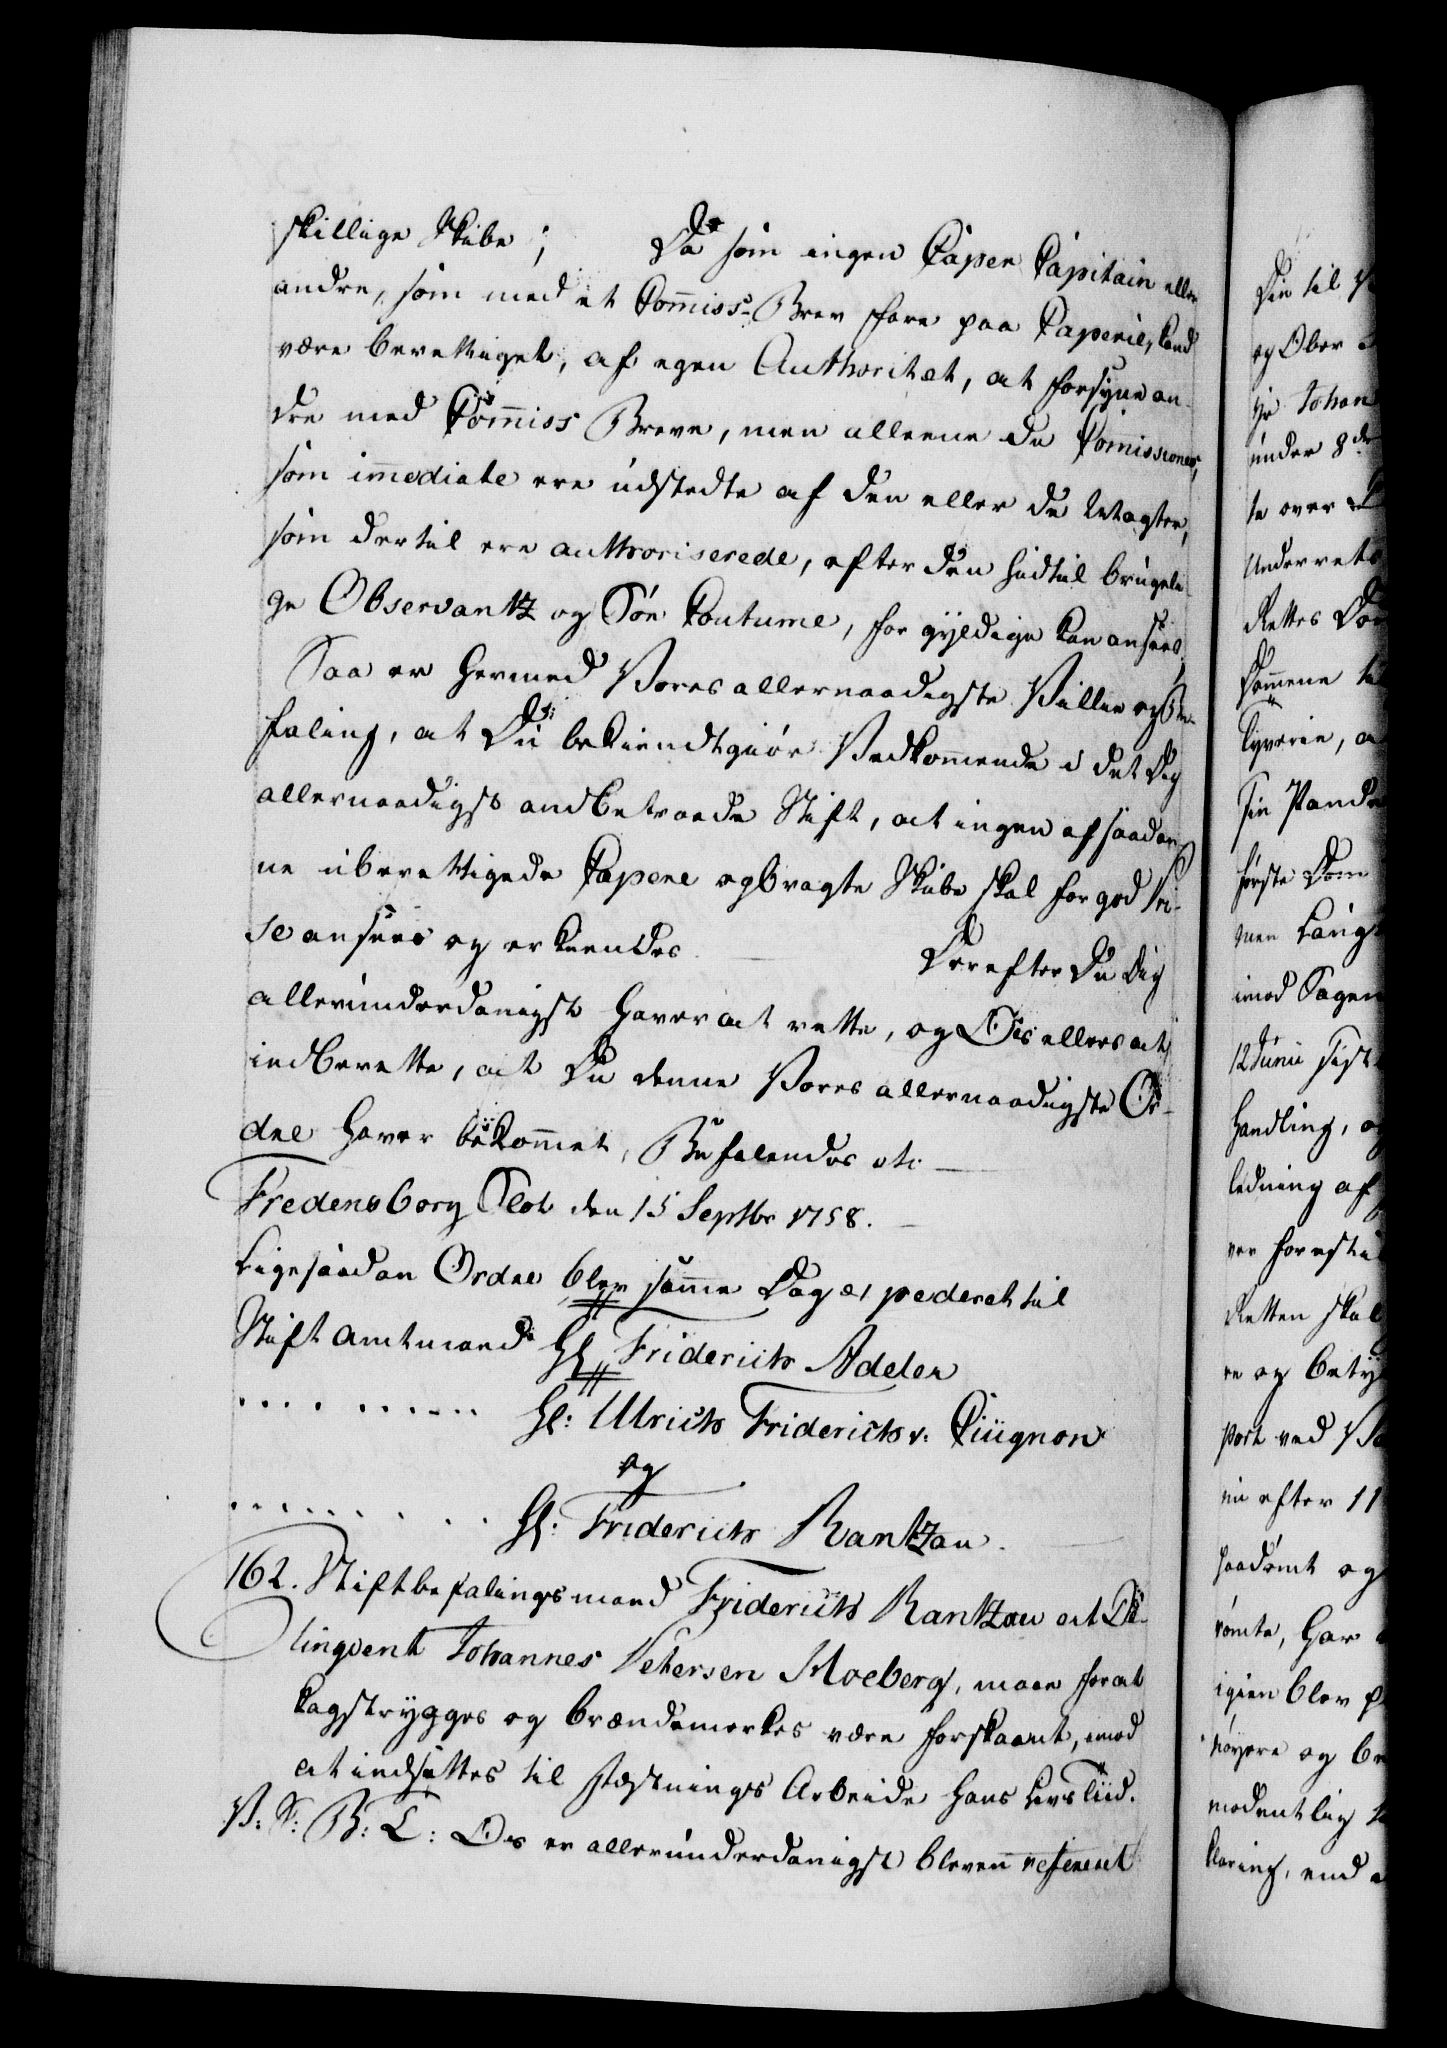 skillige Skibe; Da som ingen Caper Capitain eller
andre, som med et Com̄iss-Brev fare paa Caperie, kand
være berettiget, af egen Authoritet, at forsyne an-
dre med Com̄iss Breve, men alleene de Com̄issioner,
som im̄ediate ere udstedte af den eller de Magter,
som dertil ere authoriserede, efter den hidtil brugeli-
ge Observantz og Søe Coutume, for gyldige kan ansees,
Saa er hermed Vores allernaadigste Villie og Be-
faling, at Du bekiendtgiør Vedkom̄ende i det Dig
allernaadigst anbetroede Stift, at ingen af saadan-
ne uberettigede Capere opbragte Skibe skal for god Pri-
se ansees og erkiendes. Derefter Du Dig
allerunderdanigst haver at rette, og Os ellers at
indberette, at Du denne Vores allernaadigste Or-
dre haver bekom̄et, Befalendes etc
Fredensborg Slot den 15 Septbr 1758.
Ligesaadan Ordre blev sam̄e Dag expederet til
Stiftamtmand Hr Friderich Adeler
.......... Hr: Ulrich Friderich v: Cügnon
og
.......... Hr: Friderich Rantzau.
162. Stiftbefalingsmand Friderich Rantzau at De-
linqvent Johannes Petersen Moeberg, maae for at
kagstryges og brændemerkes være forskaant, imod
at indsættes til Fæstnings Arbeide hans Livs Tiid.
V: S: B: T: Os er allerunderdanigst bleven refereret
Din til
og Ober
ge Johan
under 8de
te over
Underrets
Rettes Dom
Dom̄ene
Tyverie, a
sin
første Dom
men Langt
imod Sagen
12 Junii sist
Handling, og
ledning af
ver forestil
Retten skal
re og bety
port ved
ni efter 11
saadømt og
rømte, har
igien blev
nøyere og be
modentlig
klaring, end a